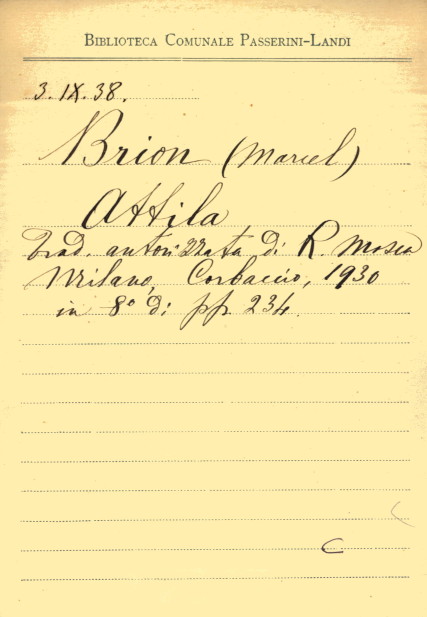 BIBLIOTECA COMUNALE PASSERINI-LANDI
3. IX. 38.
Brion (Marcel)
Attila
Trad. autorizzata di R. Mosca
Milano, Corbaccio, 1930
in 8° di pp. 234.
C